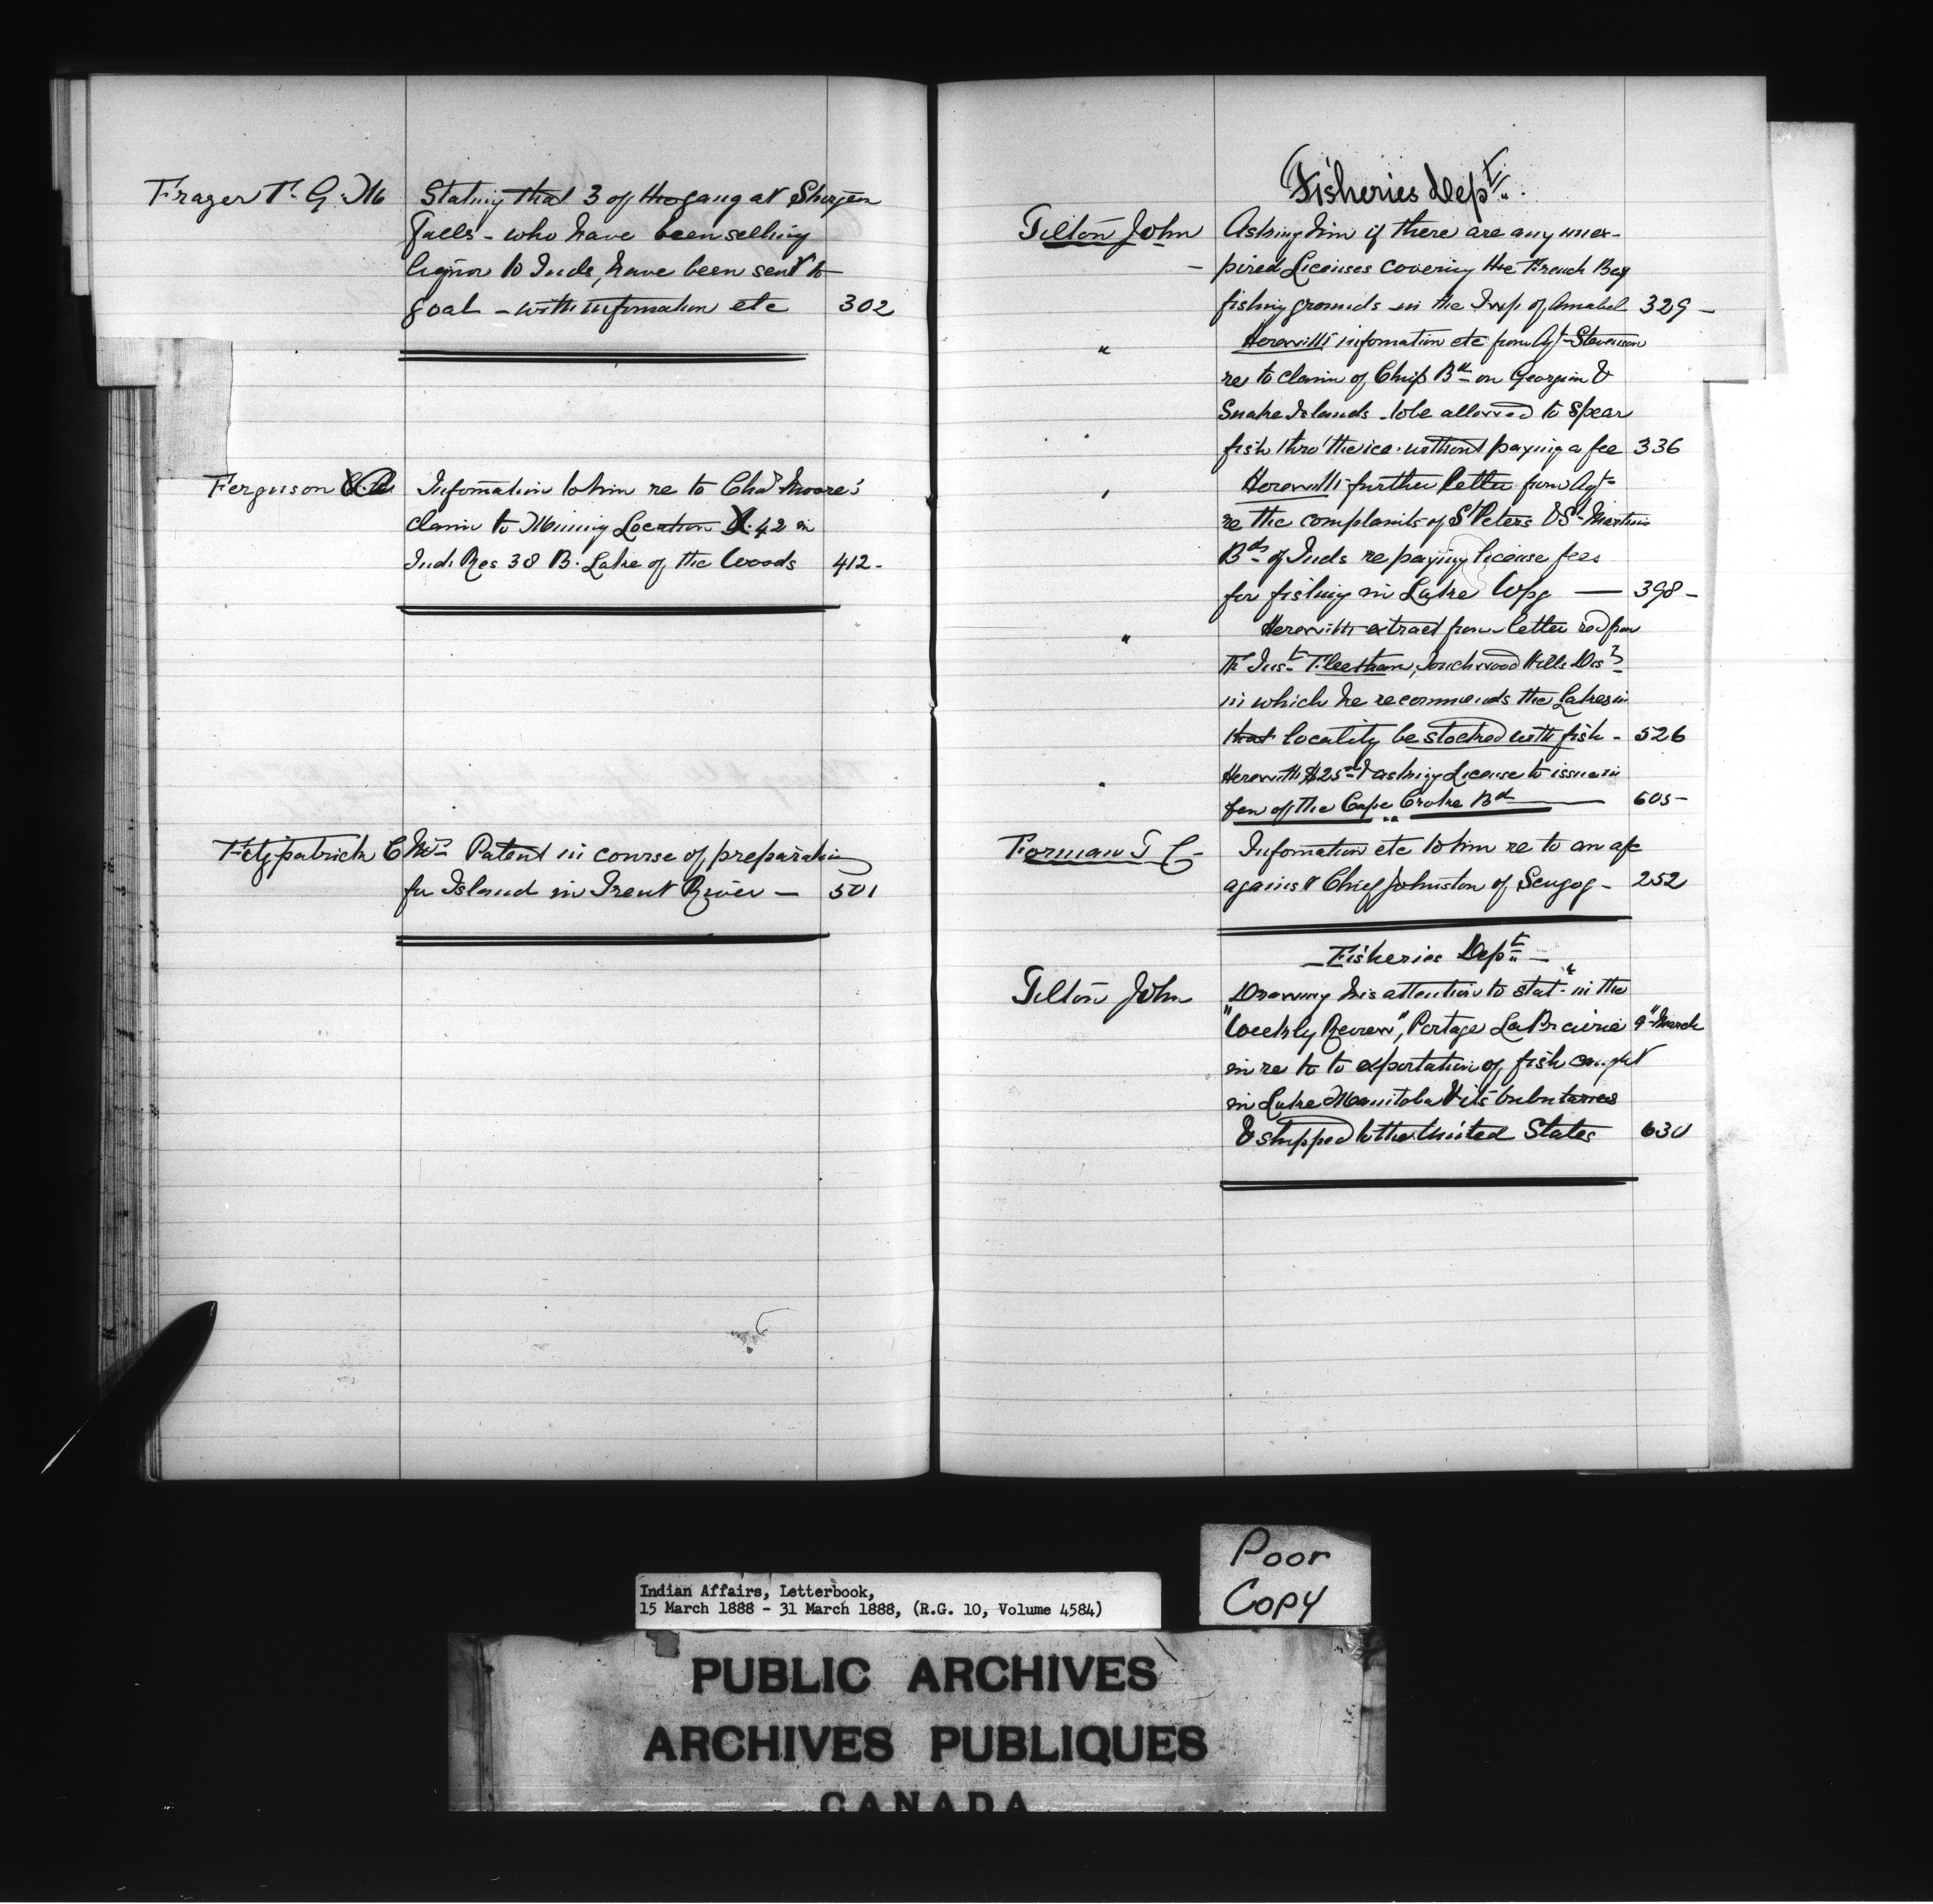 Frazer T. G. M Stating that 3 of the gang at Sturgeon
Falls - who have been selling
liquor to Inds, have been sent to
goal - with information etc 302
Ferguson Information to him re to Chas Moore's
claim to Mining Location X. 42 in
Ind. Res 38 B. Lake of the Woods 412-
Fitzpatrick C Mrs Patent in course of preparation
for Island in Trent River - 501
Fisheries Dept.
Tilton John Asking him if there are any unex-
pired Licenses covering the French Bay
fishing grounds in the Twp. of Amabel 329 -
" Herewith infomation etc from Agt Stevenson
re to claim of Chip Bd on Georgina &
Snake Islands - to be allowed to spear
fish thro' the ice without paying a fee 336
" Herewith further letter from Agt
re the complaints of St Peters & St Martins
Bds of Inds re paying license fees
for fishing in Lake Wpg — 398 -
" Herewith extract from letter recd from
Touchwood Hills Dist
in which he recommends the Lakes in
that locality be stocked with fish - 526
" Herewith $25 & asking License to issue in
fav of the Cape Croker Bd 605-
Forman T C - Information etc to him re to an
against Chief Johnston of Scugog - 252
- Fisheries Dept. -
Tilton John Drawing his attention to stat in the
"Weekly Review", Portage La Prairie 9" March
in re to to exportation of fish caught
in Lake Manitoba & its tributaries
& shipped to the United States 630
Poor
Copy
Indian Affairs, Letterbook,
15 March 1888 - 31 March 1888, (R.G. 10, Volume 4584)
PUBLIC ARCHIVES
ARCHIVES PUBLIQUES
CANADA